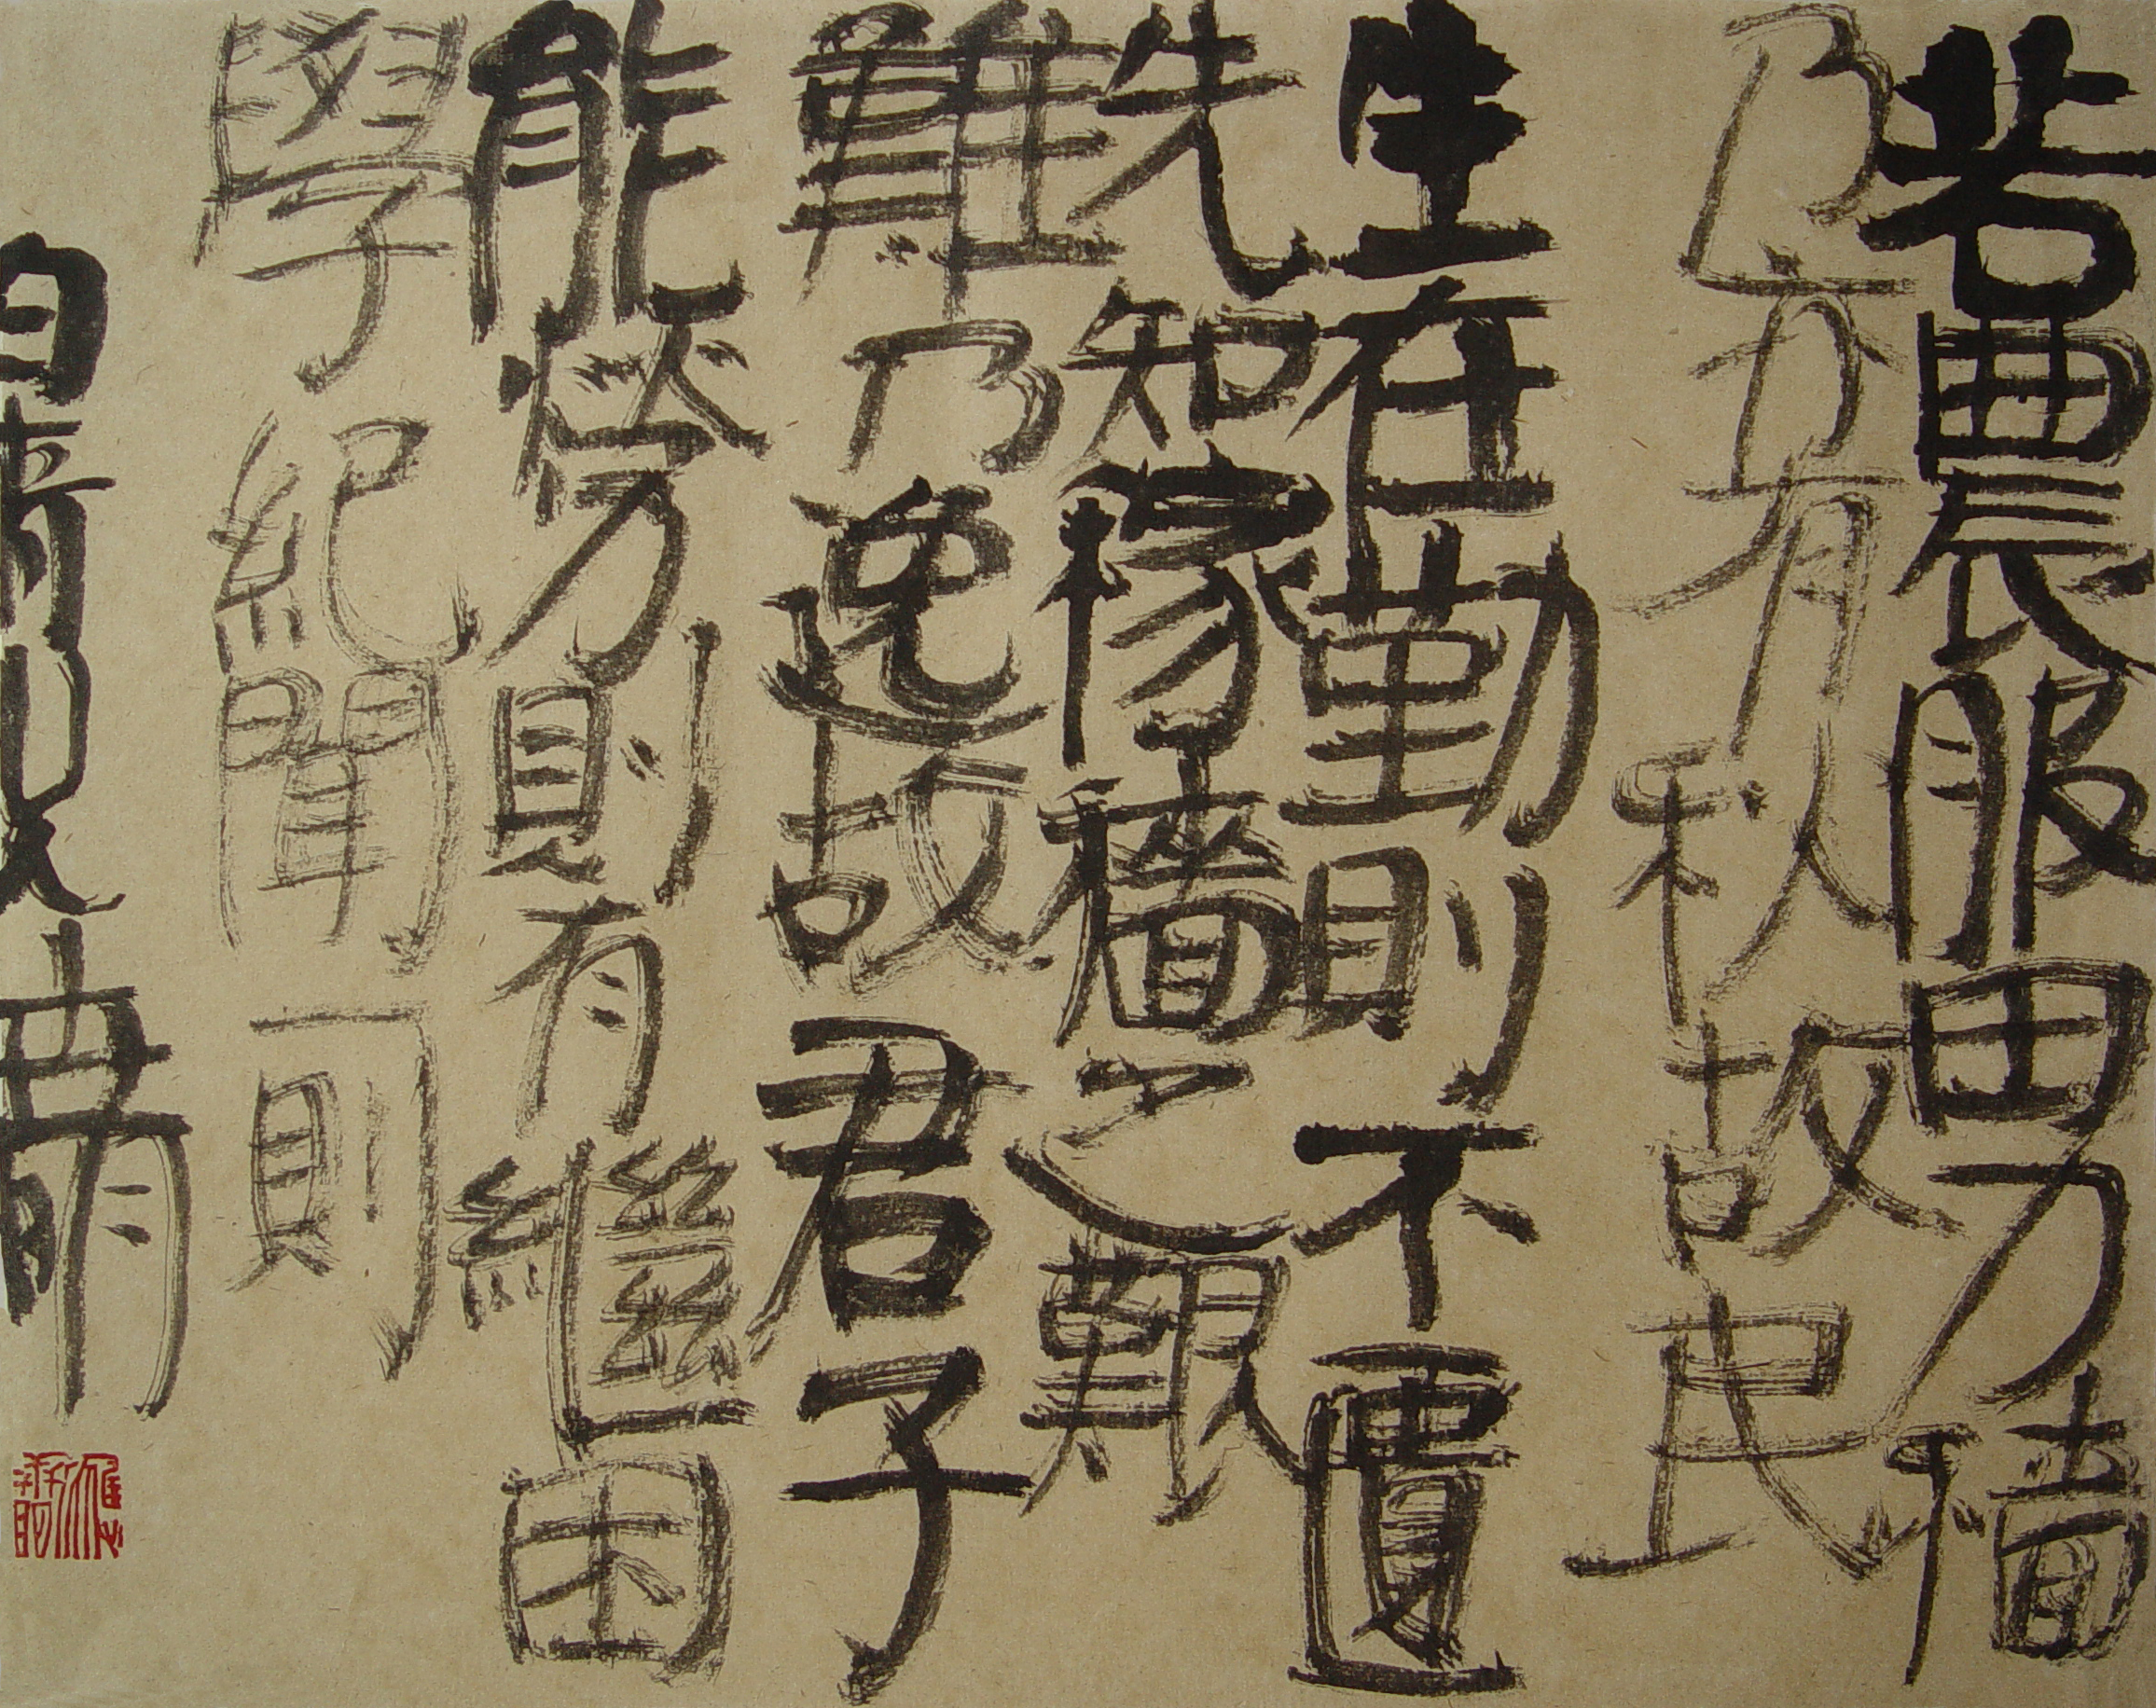 若農服田力穡
乃亦有秋故民
生在勤則不匱
先知稼穡之艱
難乃逸故君子
能勞則有繼困
學紀聞一則